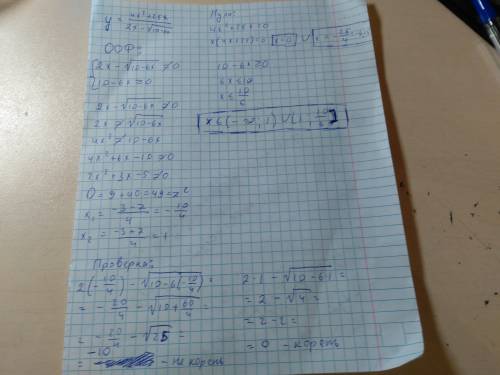 y = (4x²+25x)/(2x-√(10-6x))
ООФ:
{2x-√(10-6x) ≠0
{10-6x ≥0
2x-√(10-6x) ≠0
2x ≠ √(10-6x)
4x² ≠ 10-6x
4x²+6x-10 ≠0
2x²+3x-5 ≠0
D = 9+40=49=7²
x₁ = (-3-7)/4 = -10/4
x₂ = (-3+7)/4 = 1
Нули:
4x²+25x=0
x(4x+25)=0 x=0
10-6x ≥0
6x ≤10
x ≤ 10/6
x ∈ (-∞; 1) ∪ (1; 10/6]
Проверка:
2(-10/4) - √(10-6(-10/4)) =
= -20/4 - √(10+60/4) =
= -20/4 - √25 =
= -10 - не корень
2·1 - √(10-6·1) =
= 2 - √4 =
= 2-2 =
= 0 - корень